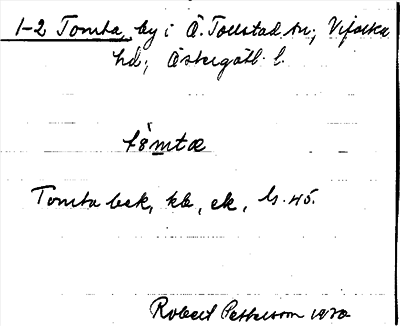 1-2 Tomta, by i Ö. Tollstad sn, Vifolka
hd, Östergötl. l.
tåmtæ
Tomta bck, kb, ek, ls. 45.
Robert Pettersson 1920